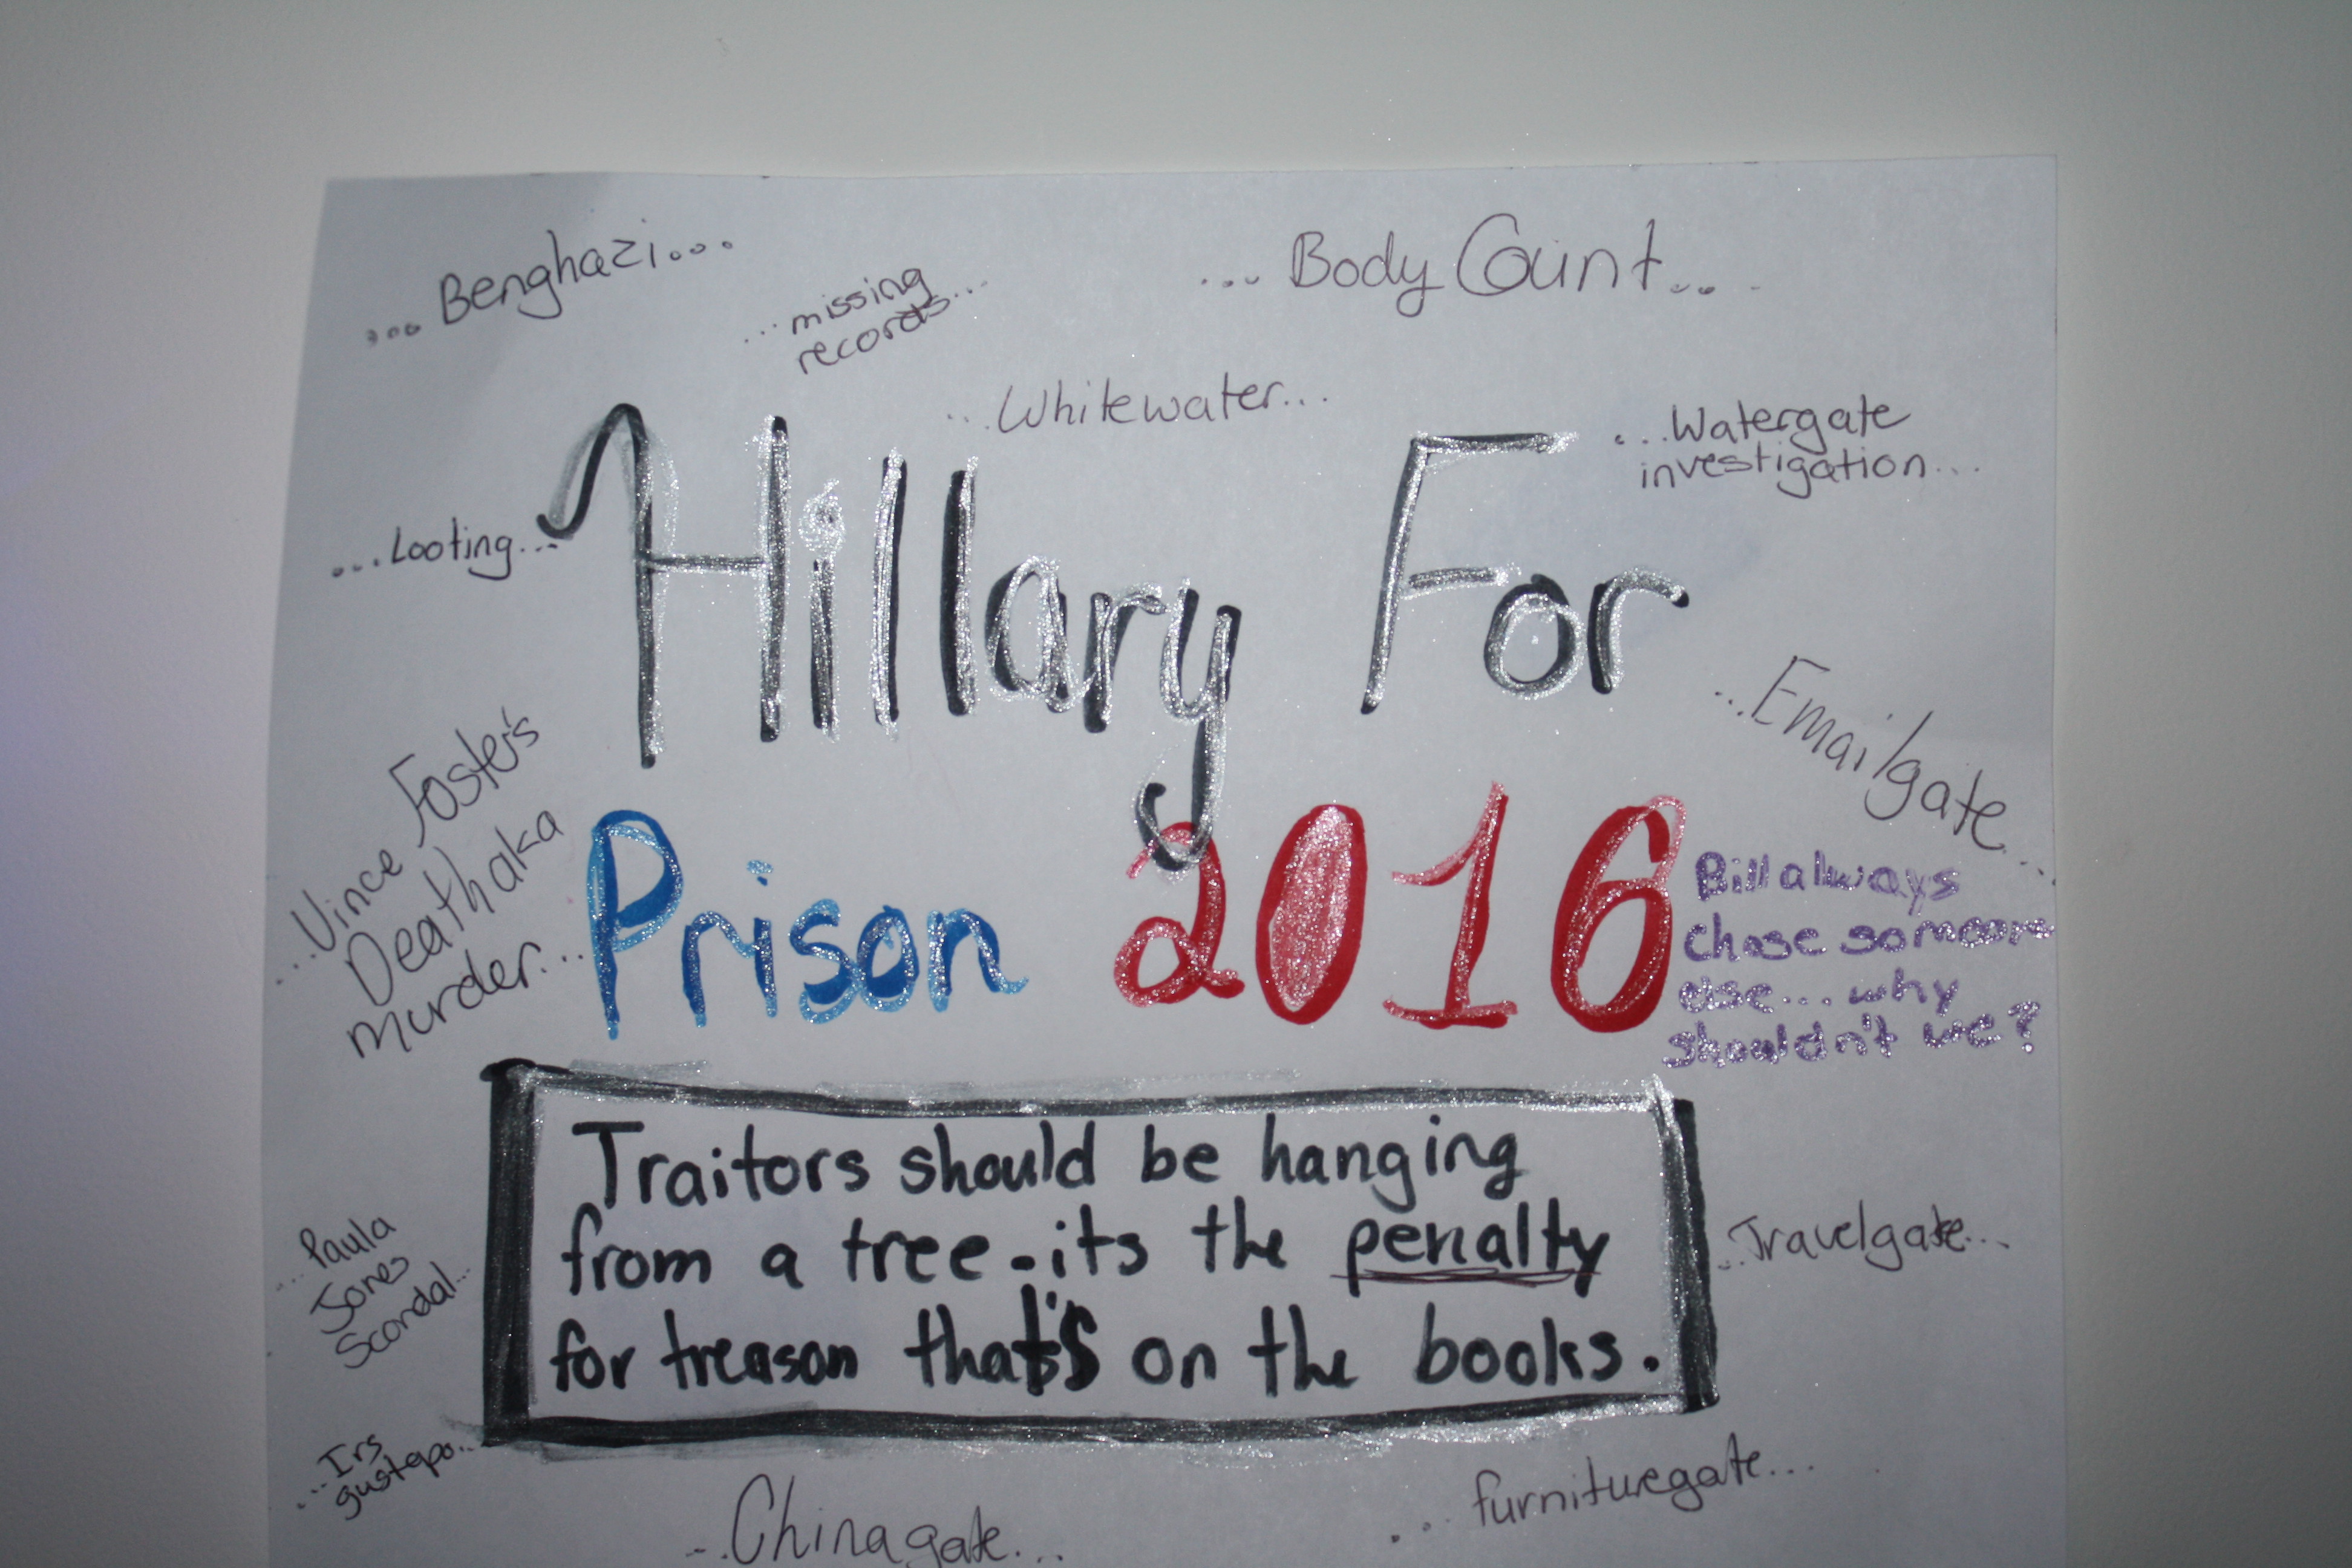 ...Benghazi...
...missing
records...
...Body Count...
..Whitewater...
...Watergate
investigation...
...Looting...
Hillary For
...Emailgate...
...Vince Foster's
Death aka
murder...
Prison 2016
Bill always
chose someone
else... why
shouldn't we?
Traitors should be hanging
from a tree - its the penalty
for treason that's on the books.
...Paula
Jones
Scandal...
...Travelgate...
...Irs
gustapo...
...Chinagate...
...furnituregate...